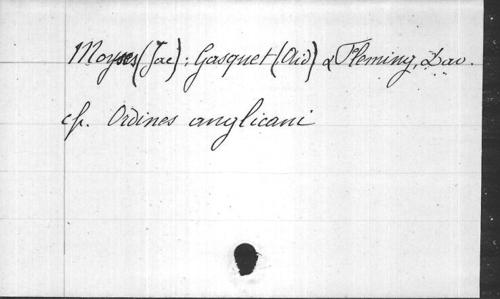 Moyes (Jac) ; Gasquet (Aid) & Fleming, Dav.
cf. Ordines anglicani